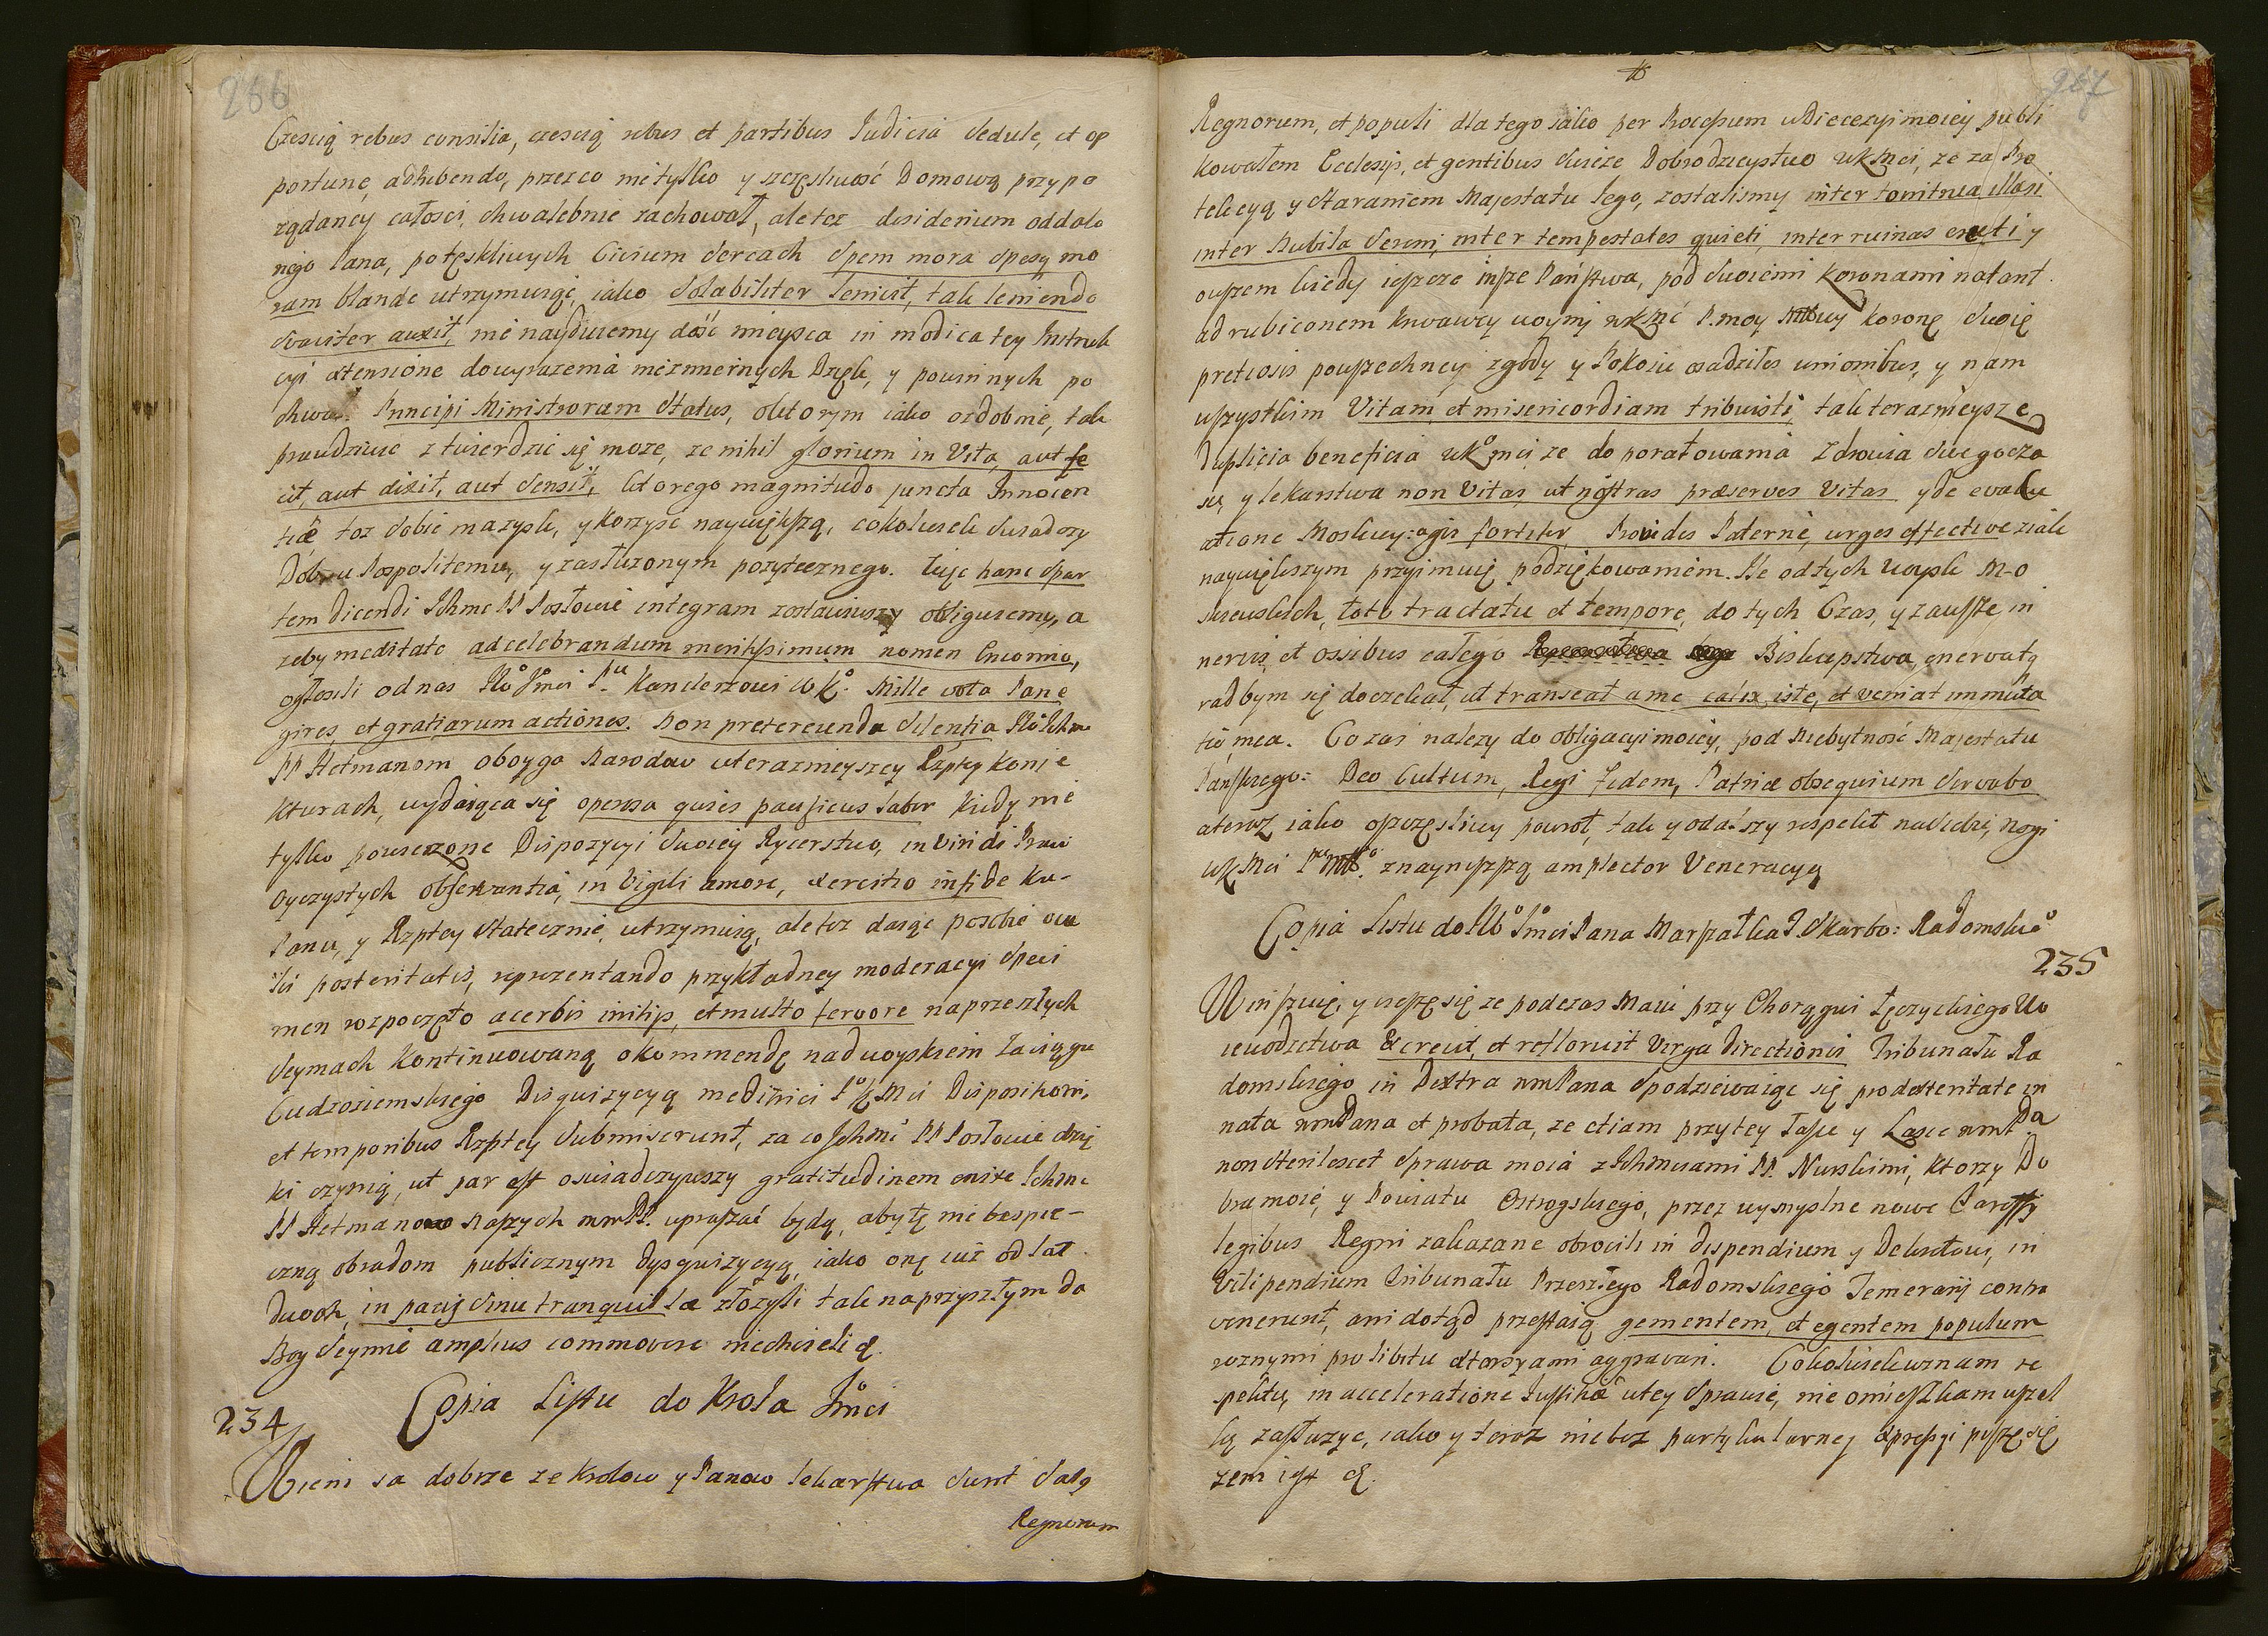 266
Czescią rebus consilia, czescią rebus et partibus Iudicia sedule, et op
portune, adhibendo, przez co nietylko y szczęsliwość Domową przy po
rządney całosci, chwalebnie zachował, ale tez desiderium oddalo
nego Pana, po tęskliwych Civium sercach spem mora spesq mo
ram blande utrzymuiąc, iako solabiliter leniit, tak leniendo
suaviter auxit, nie nayduiemy dość mieysca in modica tey Instruk
cyi extensione do wyrazenia niezmiernych Dzięk, y powinnych po
chwał. Principi Ministrorum Status, o ktorym iako ozdobnie, tak
prawdziwie ztwierdzic się moze, ze nihil glorium in Vita, aut fe
cit, aut dixit, aut sensit, ktorego magnitudo juncta Innocen
tiæ toz sobie ma zysk, y korzysc naywiększą, cokolwiek swiadczy
Dobru Pospolitemu, y zasłuzonym pozytecznego. Więc hanc spar
tem dicendi Ichmc PP Posłowie integram zostawiwszy obliguiemy, a
zeby meditate ad celebrandum meritissimum nomen Encomia,
ogłosili od nas JWo Jmci Pu Kanclerzowi WKo. Mille vota Pane
gires, et gratiarum actiones. Non pretereunda silentia JWo Ichm
PP Hetmanom oboygo Narodow w terazmieyszey Rzptey konie
kturach, wydaiąca się operosa quies pacificus labor kiedy nie
tylko powierzone Dispozycyi swoiey Rycerstwo, in viridi Praw
Oyczystych observantia, in vigili amore, exercitio in fide ku-
Panu, y Rzptey statecznie, utrzymuią, ale tez daiąc posthæ ocu
lis posteritatis, reprezentando przykładney moderacyi speci
men rozpoczęto acerbis initijs, et multo fervore na przeszłych
Seymach kontinuowaną o kommendę nad woyskiem Zaciągu
Cudzoziemskiego Disquizycyą medicinici PoKMci Dispositioni,
et temporibus Rzptey submiserunt, za co Ichmc PP Posłowie dzię
ki czynią, ut par est oswiadczywszy gratitudinem enixe Ichmc
PP Hetmanow naszych nmPP. upraszać będą, aby tę nie bespie-
czną obradom publicznym Dysquizycyą, iako onę iuz od lat
Dwoch, in pacis sinu tranquillæ złozyli tak na przyszłym da
Bog Seymie amplius commovere niechcieli &.
234
Copia Listu do Krola Jmci
Wieni sa dobrze ze krolow y Panow lekarstwa sunt salq
Regnorum
267
Regnorum, et populi dla tego iako per Processum w Diecezyi moiey publi
kowałem Ecclesijs, et gentibus swieze Dobrodzieystwo WKMci, ze za Pro
tekcyą y staraniem Majestatu Iego, zostalismy inter tonitrua illæsi
inter Nubila sereni, inter tempestates quieti, inter ruinas erecti y
owszem kiedy ieszcze insze Państwa, pod swoiemi koronami natant
ad rubiconem krwawey woyny WKMć P. moy Mwy koronę swoię
pretiosis powszechney zgody y Pokoiu osadziłes unionibus, y nam
wszystkim Vitam, et misericordiam tribuisti, tak terazmieysze
Duplicia beneficia WKoMci ze do poratowania Zdrowia swego cza
su y lekarstwa non vitas, ut nostras præserves Vitas y de evacu
atione Moskwy: agis fortiter, Provides Paterne, urges effective ziak
naywiększym przyimuię podziękowaniem. Ile od tych woysk Mo
skiewskich, toto tractatu et tempore, do tych Czas, y zawsze in
nervis et ossibus całego Biskupstwa, enervatą
rad bym się doczekał, ut transeat a me calix iste, et veniat immuta
tio mea. Co zas nalezy do obligacyi moiey, pod Niebytność Majestatu
Pańskiego: Deo Cultum, Regi Fidem, Patriæ obsequium servabo
a teraz iako o szczęśliwy powrot, tak y o dalszy respekt na siebie, nogi
WKMci PMo. z naynizszą amplector Veneracyą
Copia Listu do JWo Jmci Pana Marszałka P. Skarbo: Radomskio
235
Winszuię, y cieszę się ze podczas Maiu przy Chorągwi Łęczyckiego Wo
iewodztwa Excreuit, et refloruit Virga directionis Tribunału Ra
domskiego in Dextra nmPana Spodziewaiąc się pro dexteritate in
nata nmPana et probata, ze etiam przy tey Łasce y Lasce nmPa
non sterilescet Sprawa moia z Ichmciami PP. Nurskimi, ktorzy Do
bra moie, y Powiatu Ostrogskiego, przez wymyslne nowe Taryffy
legibus Regni zakazane obrocili in dispendium y Dekretowi, in
Vilipendium Tribunału Przeszłego Radomskiego Temerarij contra
venerunt, ani dotąd przestaią gementem, et egentem populum
roznymi pro libitu extorsyami aggravari. Cokolwiek wznam re
spektu, in acceleratione Justitiæ w tey Sprawie, nie omieszkam wszel
ką zasłuzyc, iako y teraz nie bez partykularney expressyi piszę się
zem iest &.